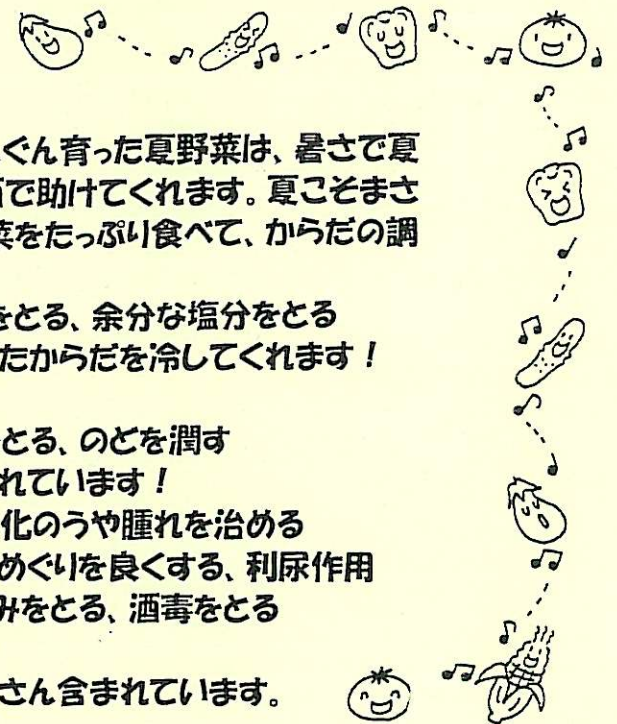 ぐん育った夏野菜は、暑さで夏
で助けてくれます。夏こそまさ
菜をたっぷり食べて、からだの調
をとる、余分な塩分をとる
たからだを冷してくれます！
とる、のどを潤す
れています！
化のうや腫れを治める
めぐりを良くする、利尿作用
みをとる、酒毒をとる
さん含まれています。